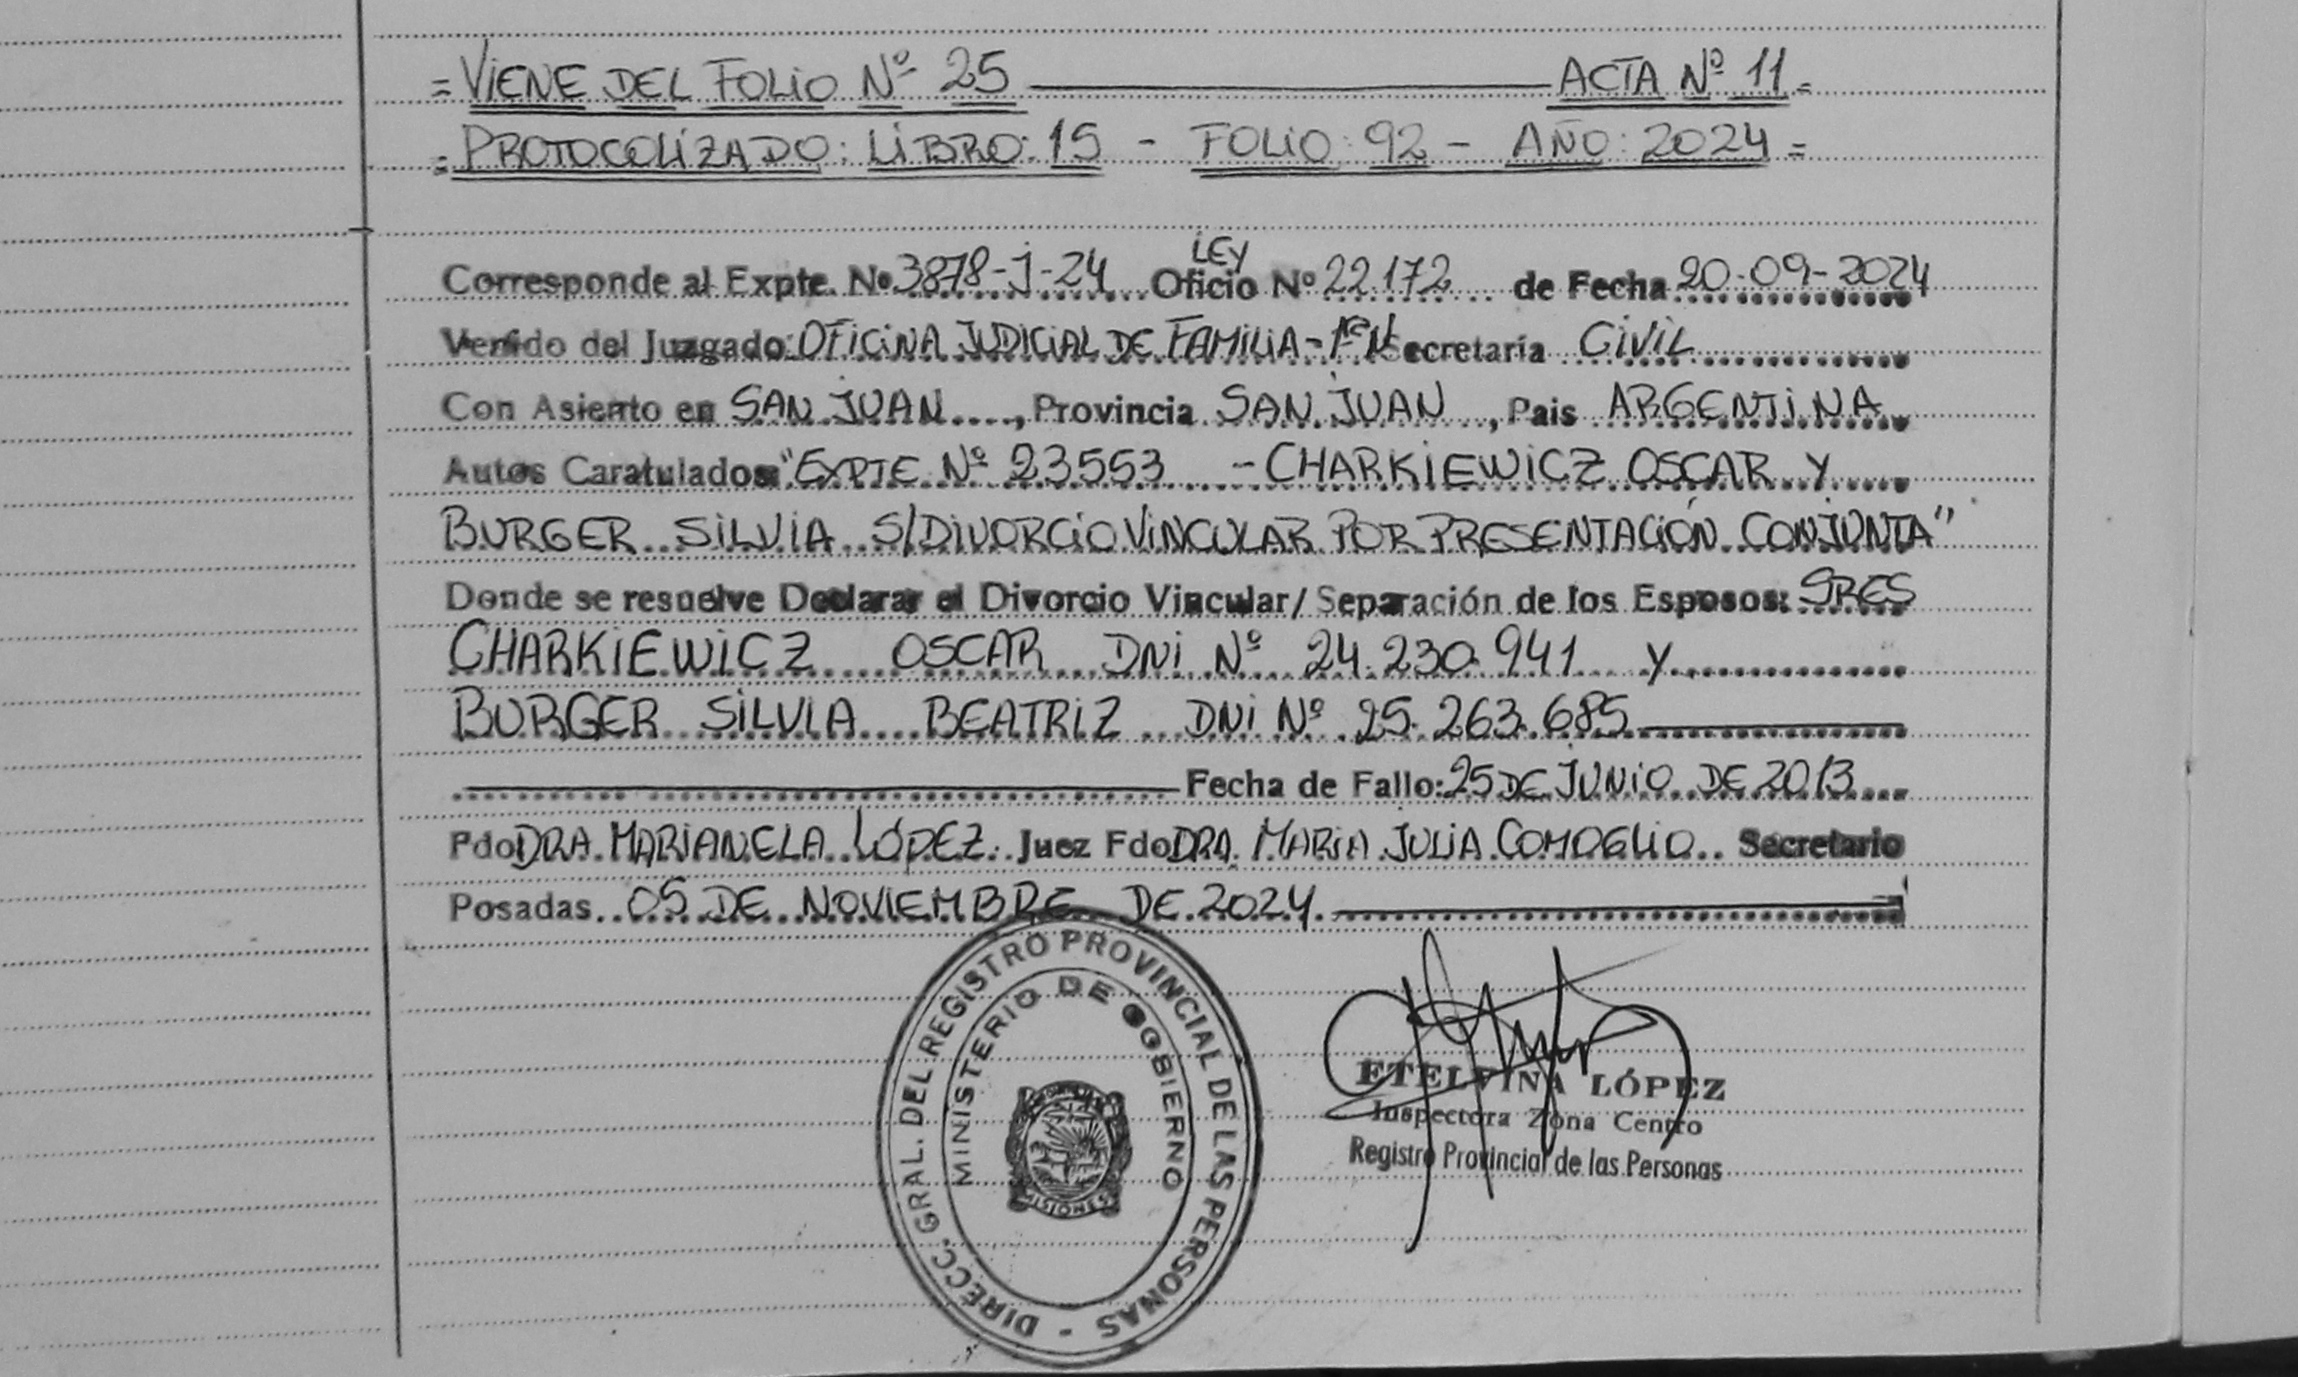 = VIENE DEL FOLIO Nº 25 — ACTA Nº 11 =
= PROTOCOLIZADO: LIBRO: 15 - FOLIO: 92 - AÑO: 2024 =
LEY
Corresponde al Expte. Nº 3878-J-24 Oficio Nº 22.172 de Fecha 20-09-2024
Venido del Juzgado: OFICINA JUDICIAL DE FAMILIA - Secretaría CIVIL
Con Asiento en SAN JUAN, Provincia SAN JUAN, Pais ARGENTINA
Autos Caratulados: "EXPTE Nº 23553 - CHARKIEWICZ OSCAR Y
BURGER SILVIA S/DIVORCIO VINCULAR POR PRESENTACIÓN CONJUNTA"
Donde se resuelve Declarar el Divorcio Vincular/ Separación de los Esposos: SRES
CHARKIEWICZ OSCAR DNI Nº 24.230.941 Y
BURGER SILVIA BEATRIZ DNI Nº 25.263.685
Fecha de Fallo: 25 DE JUNIO DE 2013
Fdo DRA. MARIANELA LÓPEZ. Juez Fdo DRA. MARIA JULIA COMOGLIO Secretario
Posadas 05 DE NOVIEMBRE DE 2024.
DIRECC. GRAL. DEL REGISTRO PROVINCIAL DE LAS PERSONAS -
MINISTERIO DE GOBIERNO
MISIONES
ETELVINA LÓPEZ
Inspectora Zona Centro
Registro Provincial de las Personas